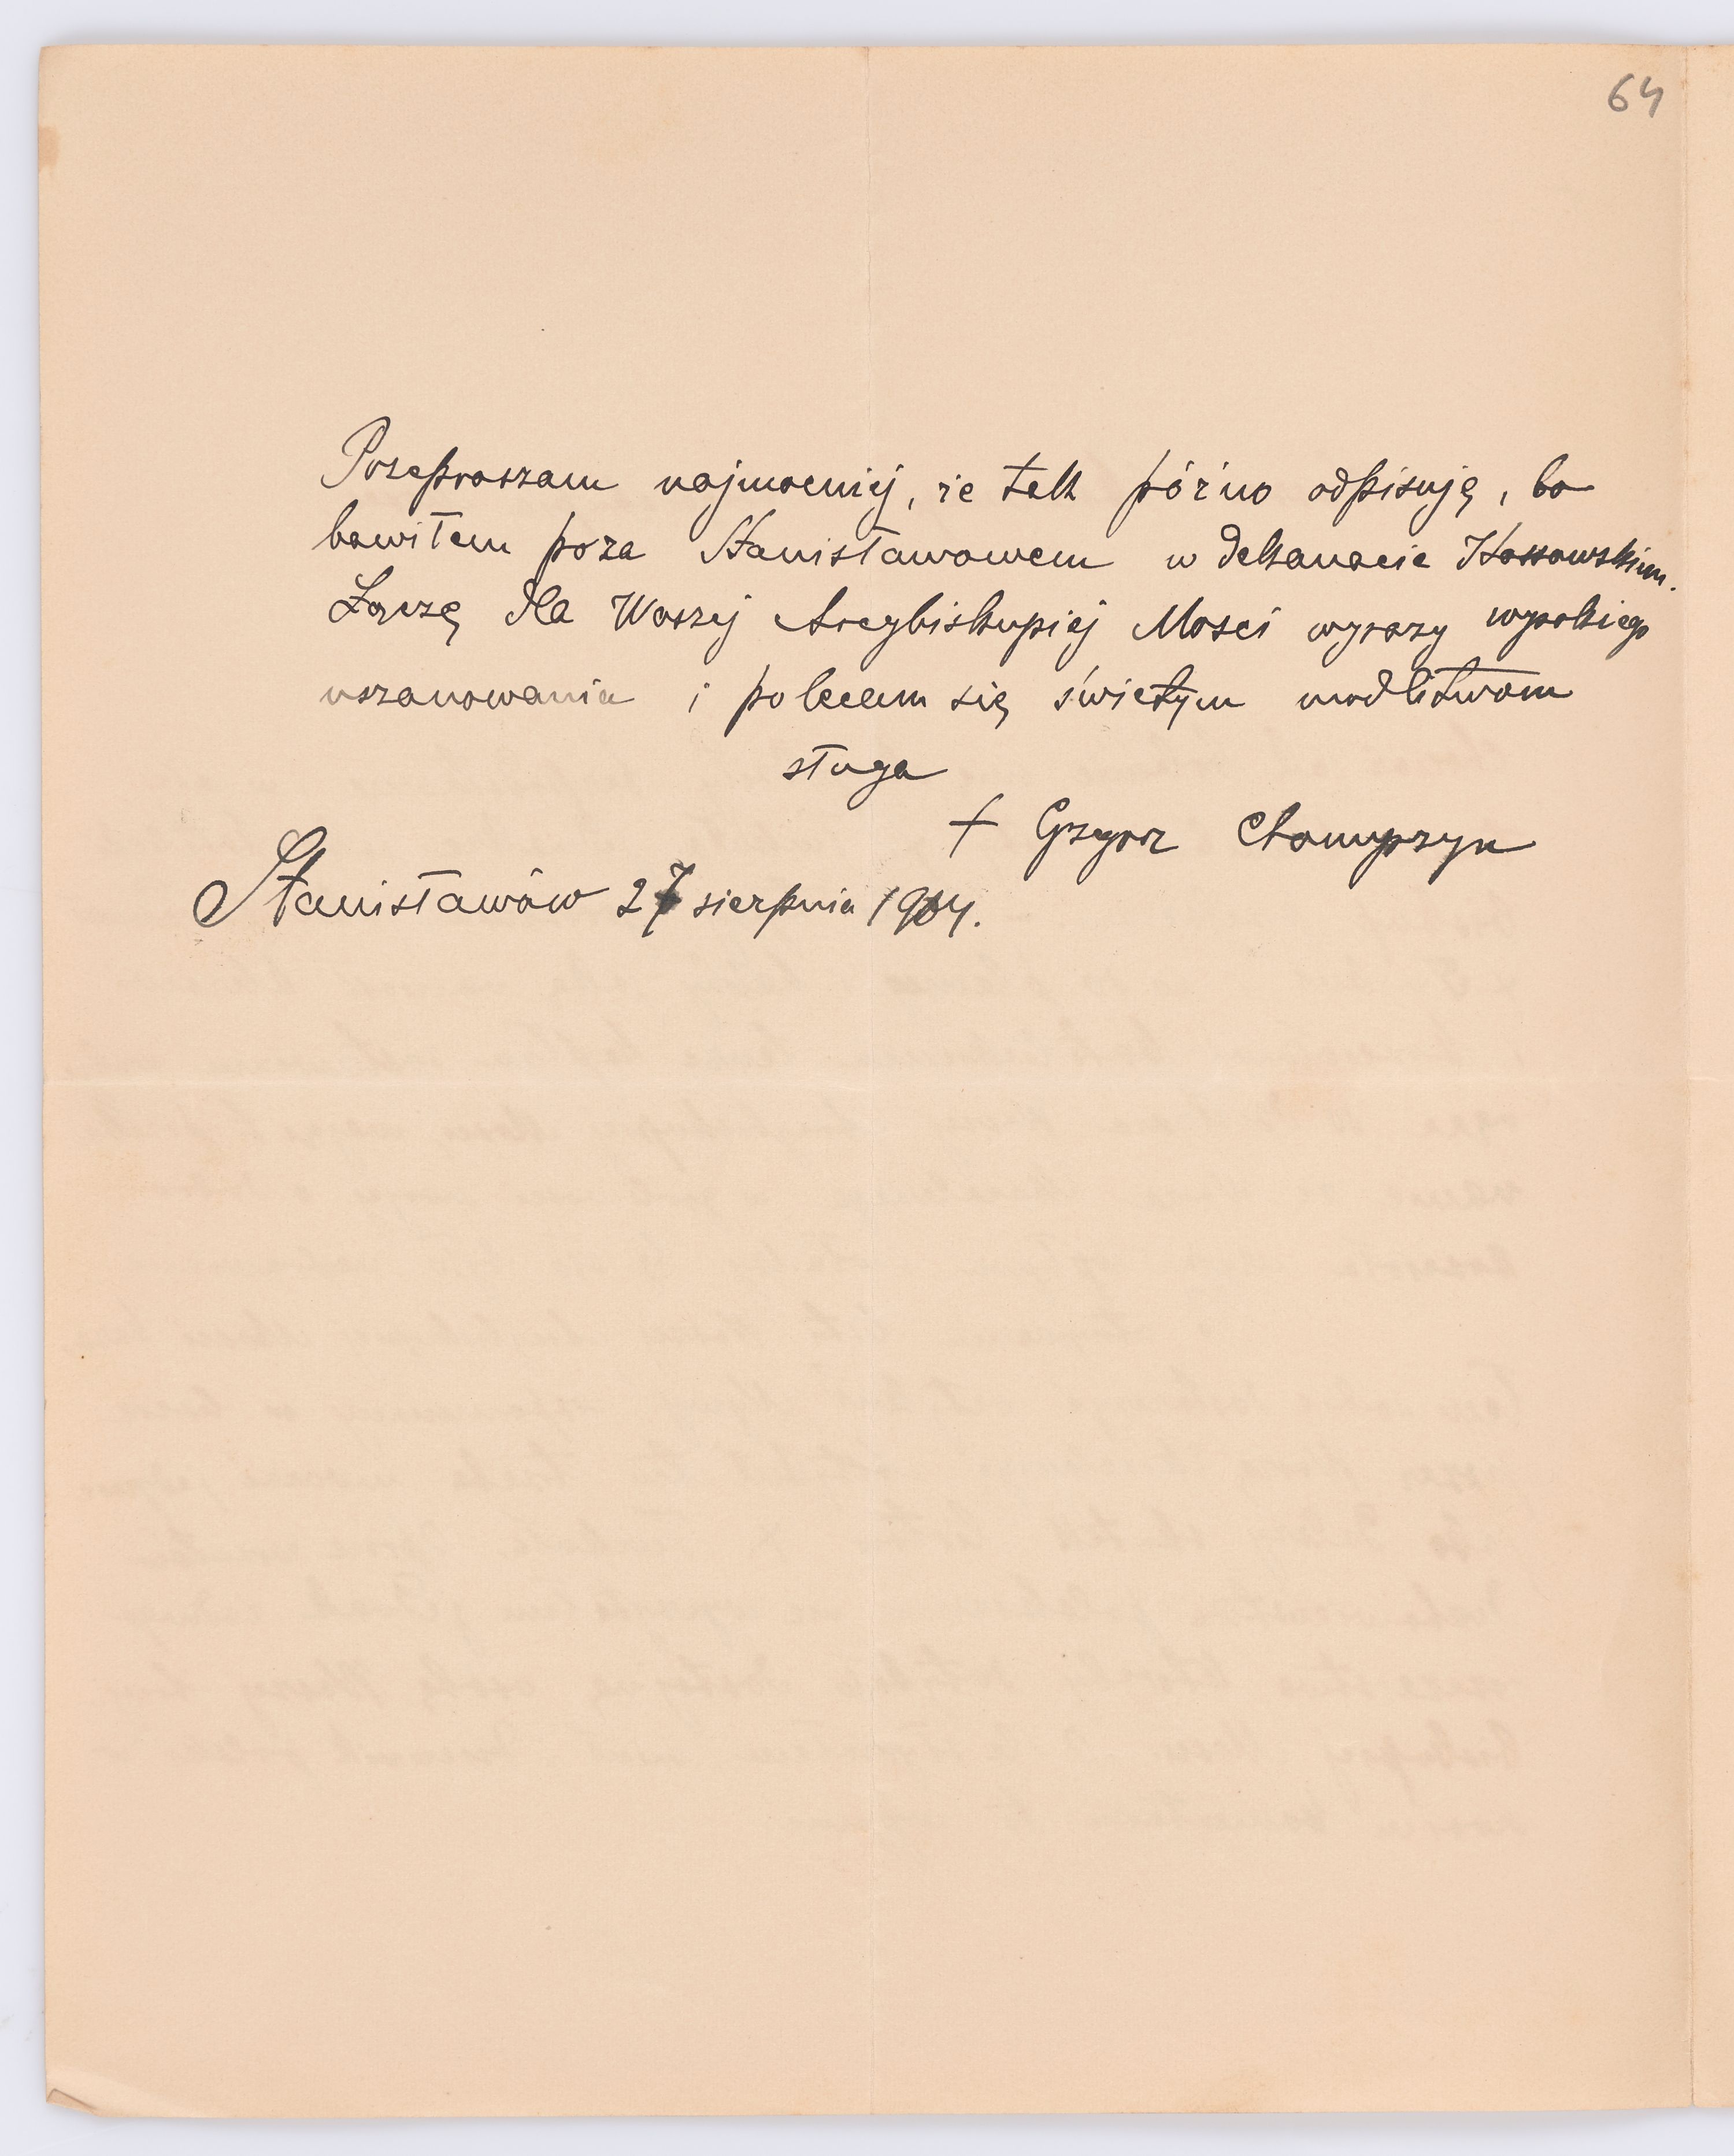 64
Przepraszam najmocniej, że tak późno odpisuję, bo
bawiłem poza Stanisławowem w dekanacie Kossowskim.
Łączę dla Waszej Arcybiskupiej Mości wyrazy wysokiego
uszanowania i polecam się świętym modlitwom
sługa
+ Grzegorz Chomyszyn
Stanisławów 27 sierpnia 1904.